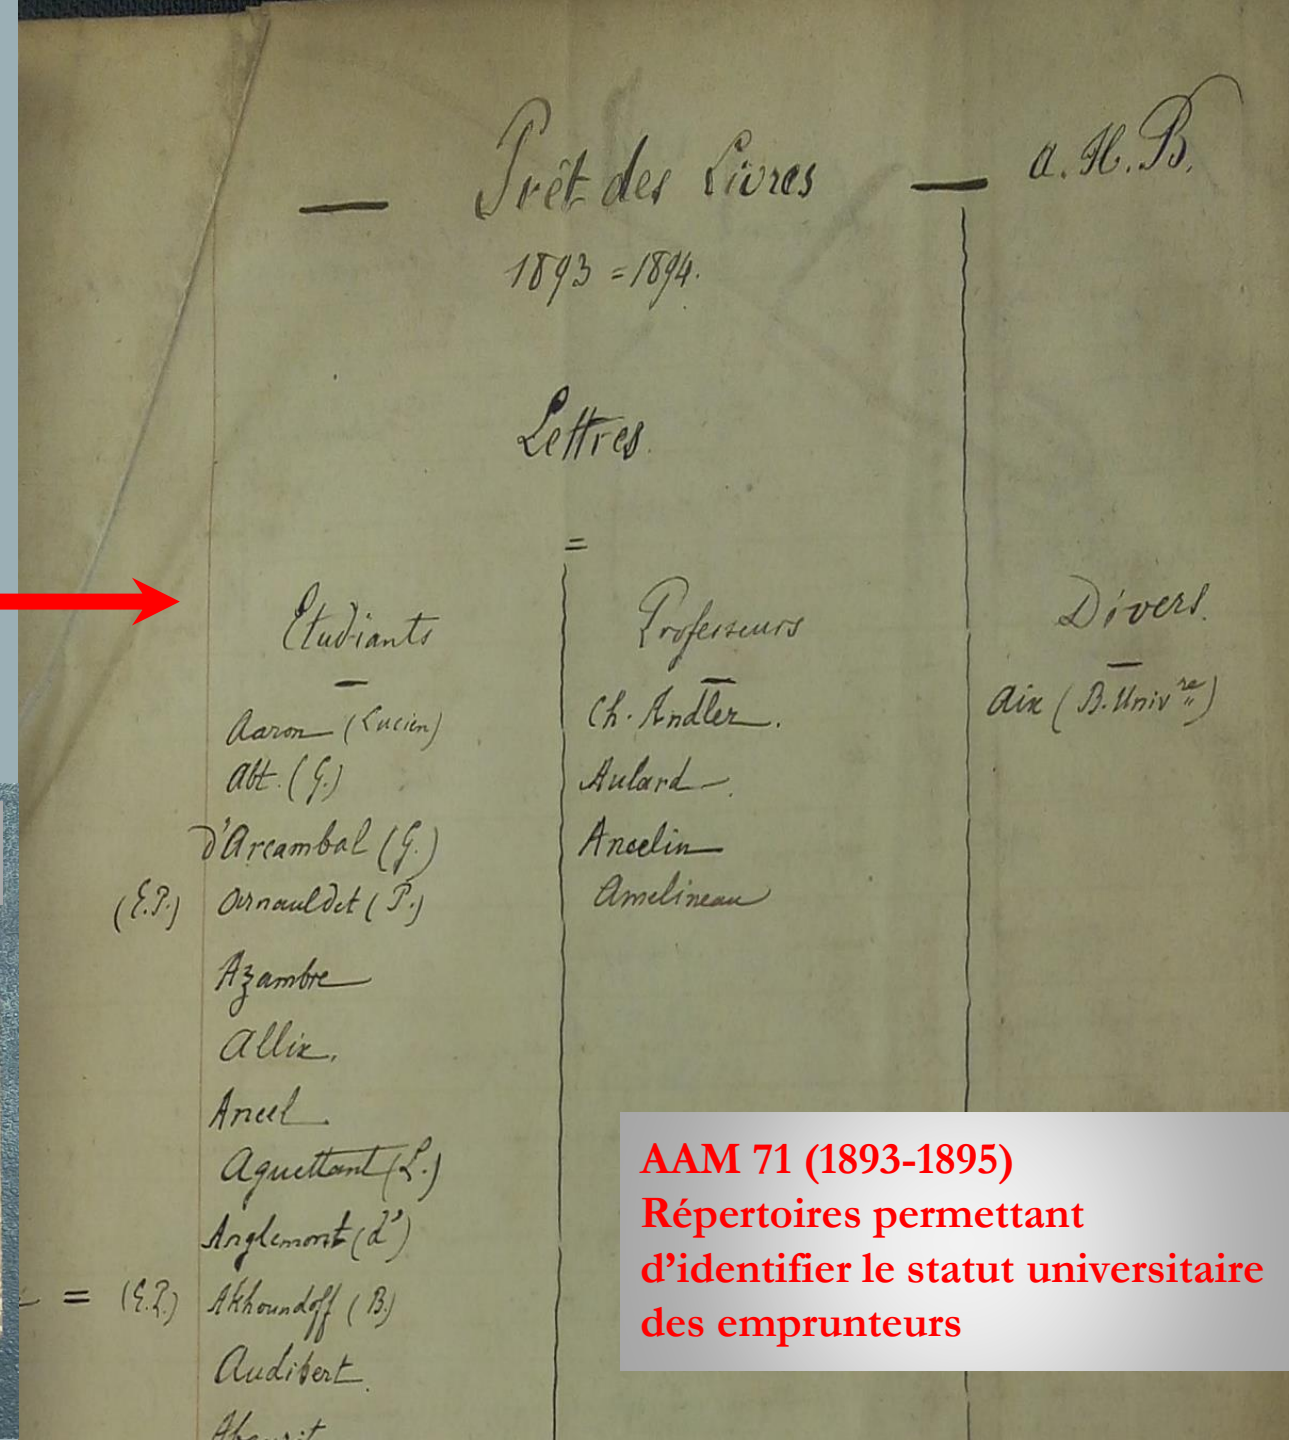 — Prêt des Livres — A.H.B.
1893 = 1894.
Lettres.
=
Etudiants
—
Aaron (Lucien)
Abt. (G.)
d'Arcambal (G.)
(E.P.) Arnauldet (P.)
Azambre
Allix.
Ancel
Aguettant (L.)
Anglemont (d')
= (E.P.) Akhoundoff (B.)
Audibert.
Professeurs
—
Ch. Andler.
Aulard.
Ancelin
Amelineau
Divers.
—
Aix (B. Univre)
AAM 71 (1893-1895)
Répertoires permettant
d’identifier le statut universitaire
des emprunteurs